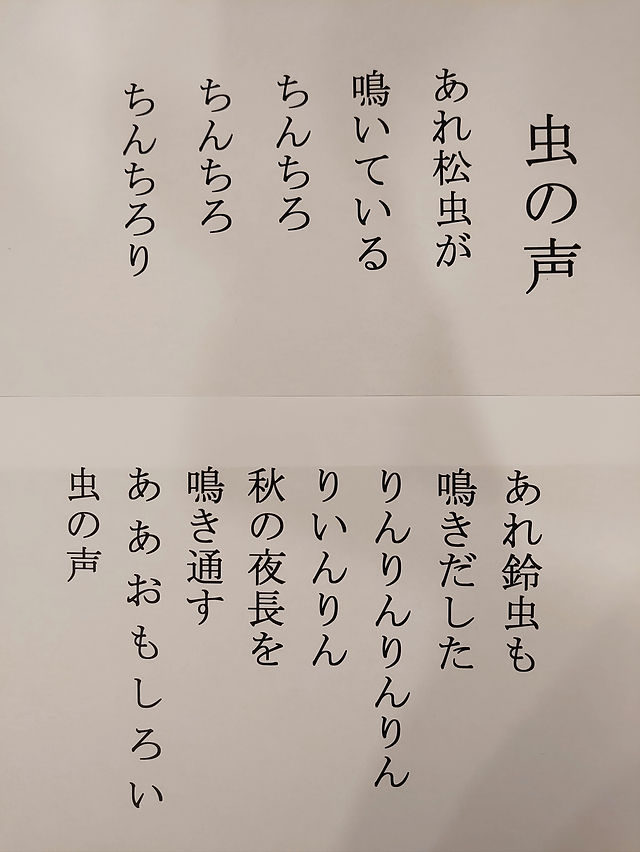 虫の声
あれ松虫が
鳴いている
ちんちろ
ちんちろ
ちんちろり
あれ鈴虫も
鳴きだした
りんりんりんりん
りいんりん
秋の夜長を
鳴き通す
ああおもしろい
虫の声